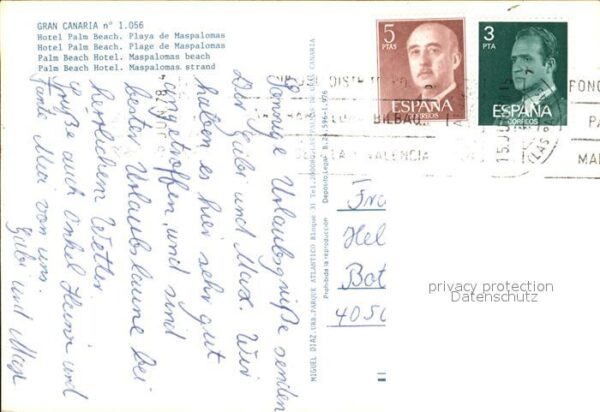 GRAN CANARIA nº 1.056
Hotel Palm Beach. Playa de Maspalomas
Hotel Palm Beach. Plage de Maspalomas
Palm Beach Hotel. Maspalomas beach
Palm Beach Hotel. Maspalomas strand
Sonnige Urlaubsgrüße senden
Dir Gabi und Max. Wir
haben es hier sehr gut
angetroffen, und sind
bester Urlaubslaune bei
herrlichem Wetter.
Gruß auch Onkel Heini und
Tante Mai von uns.
Gabi und Max
MIGUEL DIAZ.URB.PARQUE ATLANTICO Bloque 31
Prohibida la reproducción
Depósito Legal B.
5
PTAS
ESPAÑA
CORREOS
3
PTA
ESPAÑA
CORREOS
BILBAO
VALENCIA
FONO
PA
MA
15 JU
Fra
Hel
Bot
4050
privacy protection
Datenschutz